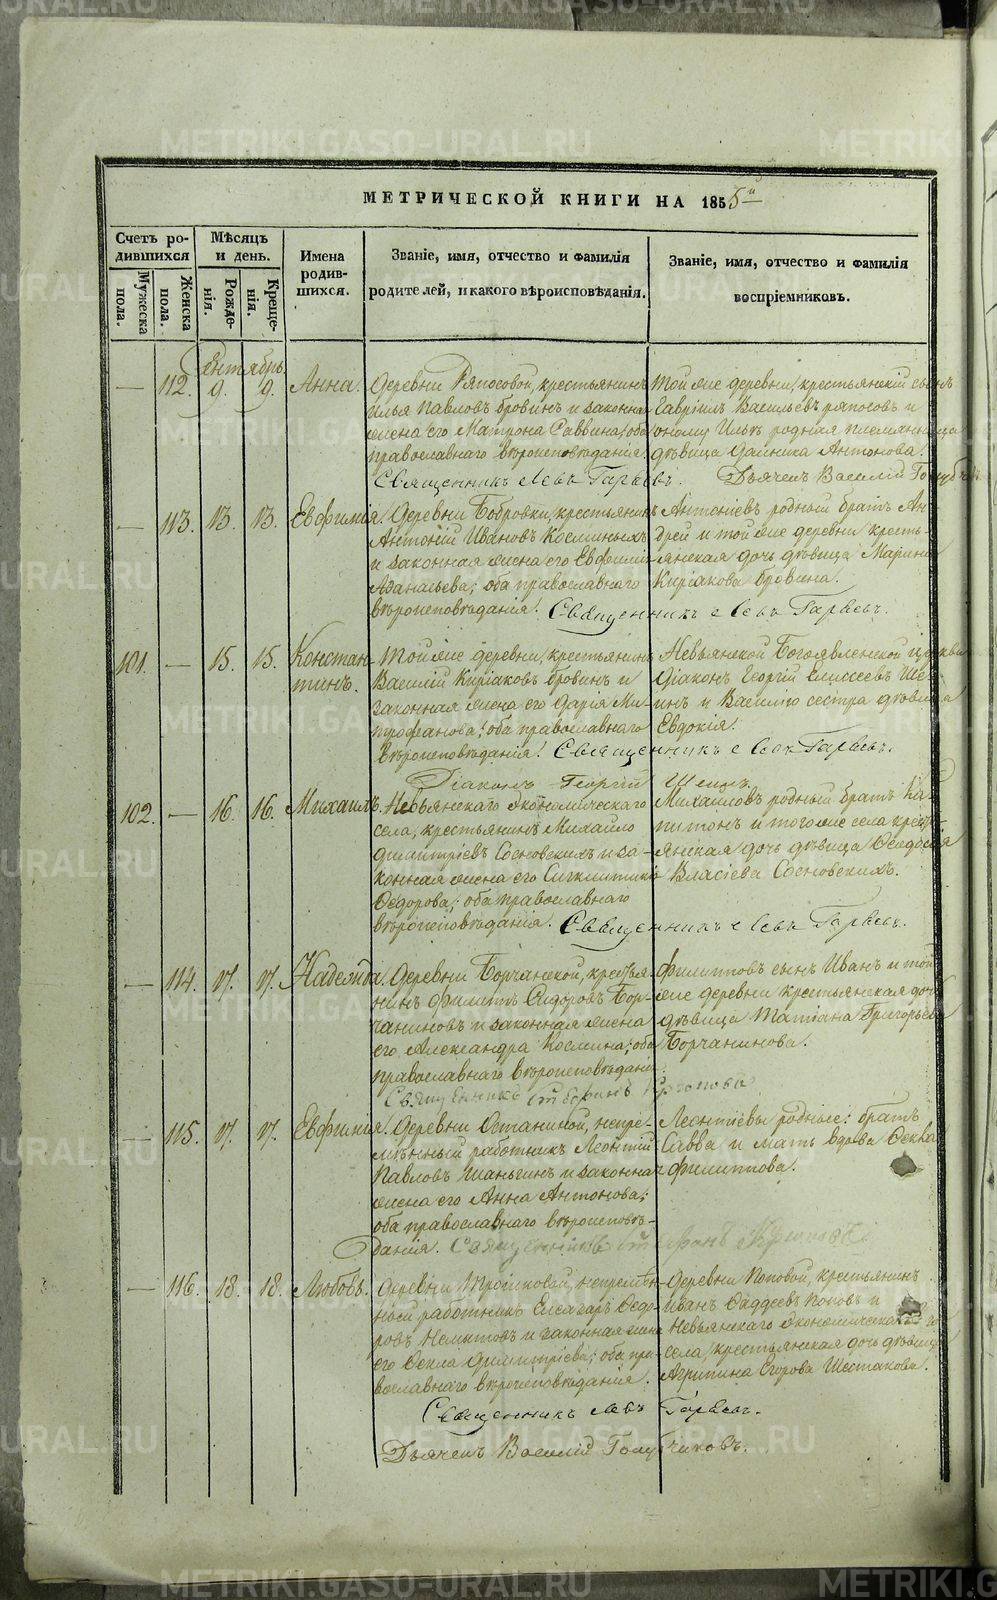 МЕТРИЧЕСКОЙ КНИГИ НА 1855й
Счетъ ро-
дившихся
Мужеска
пола.
Женска
пола.
Мѣсяцъ
и день.
Рожде-
нія.
Креще-
нія.
Имена
родив-
шихся.
Званіе, имя, отчество и фамилія
родителей, и какого вѣроисповѣданія.
Званіе, имя, отчество и фамилія
воспріемниковъ.
Сентябрь
— 112. 9. 9. Анна.
Деревни Ряпосовой, крестьянинъ
Илья Павловъ Бровинъ и законная
жена его Матрона Саввина; оба
православнаго вѣроисповѣданія.
Той же деревни, крестьянскій сынъ
Гавріилъ Васильевъ Ряпосовъ и
оному Ильѣ родная племянница
дѣвица Антонова.
Священникъ Левъ Гаряевъ.
Дьячекъ Василій
— 113. 13. 13. Евфимія.
Деревни Бобровки, крестьянинъ
Антоній Ивановъ Косминыхъ
и законная жена его Евфимія
Аѳанасьева; оба православнаго
вѣроисповѣданія.
Антоніевъ родный братъ Ан-
дрей и той же деревни кресть-
янская дочь дѣвица Марина
Киріакова Бровина.
Священникъ Левъ Гаряевъ.
101. — 15. 15. Констан-
тинъ.
Той же деревни, крестьянинъ
Василій Киріаковъ Бровинъ и
законная жена его Дарія Ми-
трофанова; оба православнаго
вѣроисповѣданія.
Невьянской Богоявленской церкви
діаконъ Георгій Елисеевъ Ше-
инъ и Василію сестра дѣвица
Евдокія.
Священникъ Левъ Гаряевъ.
Діаконъ Георгій Шеинъ.
102. — 16. 16. Михаилъ.
Невьянскаго экономическаго
села, крестьянинъ Михайло
Димитріевъ Сосновскихъ и за-
конная жена его Сигклитикія
Ѳедорова; оба православнаго
вѣроисповѣданія.
Михайловъ родный братъ Ка-
питонъ и того же села кресть-
янская дочь дѣвица Ѳеодосія
Власіева Сосновскихъ.
Священникъ Левъ Гаряевъ.
— 114. 17. 17. Надежда.
Деревни Борчанской, крестья-
нинъ Филиппъ Сидоровъ Бор-
чаниновъ и законная жена
его Александра Космина; оба
православнаго вѣроисповѣданія.
Филипповъ сынъ Иванъ и той
же деревни крестьянская дочь
дѣвица Татіана Григорьева
Борчанинова.
Священникъ Стефанъ
— 115. 17. 17. Евфимія.
Деревни Останиной, непре-
мѣнный работникъ Леонтій
Павловъ Шаньгинъ и законная
жена его Анна Антонова;
оба православнаго вѣроисповѣ-
данія.
Леонтіевы родные: братъ
Савва и мать вдова Ѳекла
Филиппова.
Священникъ Стефанъ
— 116. 18. 18. Любовь.
Деревни непремѣн-
ный работникъ Елеазаръ Ѳедо-
ровъ и законная жена
его Ѳекла Димитріева; оба пра-
вославнаго вѣроисповѣданія.
Деревни Поповой, крестьянинъ
Иванъ Ѳаддеевъ Поповъ и
Невьянскаго экономическаго
села, крестьянская дочь дѣвица
Агрипина Егорова Шестакова.
Священникъ Левъ Гаряевъ.
Дьячекъ Василій Голубчиковъ.
METRIKI.GASO-URAL.RU